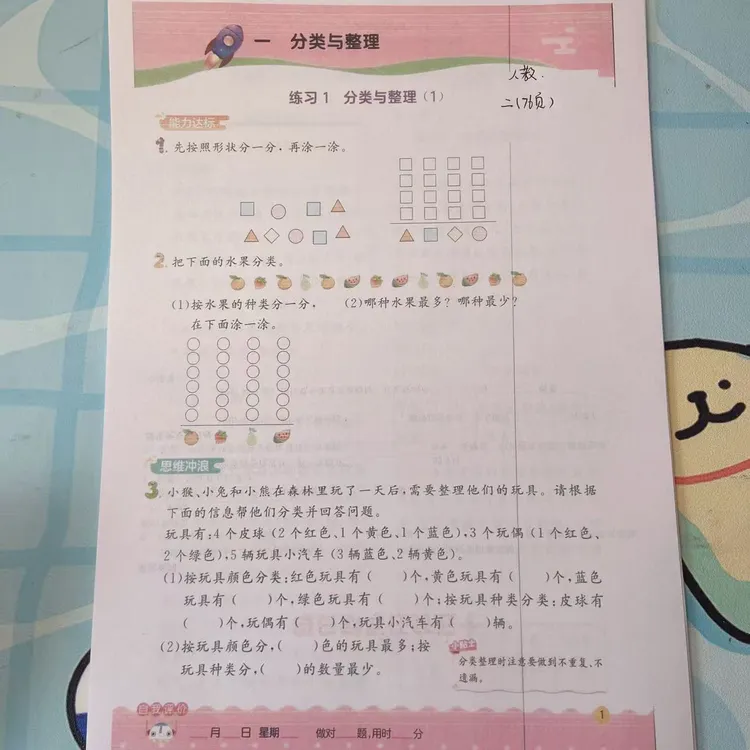 一 分类与整理
人教.
二(76页)
练习1 分类与整理(1)
能力达标
1. 先按照形状分一分，再涂一涂。
2. 把下面的水果分类。
(1)按水果的种类分一分， (2)哪种水果最多？哪种最少？
在下面涂一涂。
思维冲浪
3. 小猴、小兔和小熊在森林里玩了一天后，需要整理他们的玩具。请根据
下面的信息帮他们分类并回答问题。
玩具有:4个皮球（2个红色、1个黄色、1个蓝色），3个玩偶（1个红色、
2个绿色），5辆玩具小汽车（3辆蓝色、2辆黄色）。
(1)按玩具颜色分类:红色玩具有（ ）个，黄色玩具有（ ）个，蓝色
玩具有（ ）个，绿色玩具有（ ）个；按玩具种类分类:皮球有
（ ）个，玩偶有（ ）个，玩具小汽车有（ ）辆。
(2)按玩具颜色分，（ ）色的玩具最多；按
玩具种类分，（ ）的数量最少。
小贴士
分类整理时注意要做到不重复、不
遗漏。
自我评价
月 日 星期 做对 题，用时 分
1